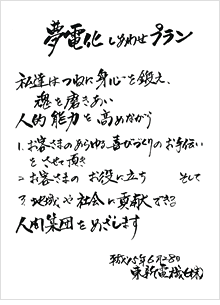 夢電化 しあわせプラン
私達はつねに身心を鍛え、
魂を磨きあい
人的能力を高めながら
1.お客さまのあらゆる喜びづくりのお手伝い
をさせて頂き
2.お客さまのお役に立ち そして
3.地域や社会に貢献できる
人間集団をめざします
平成15年6月28日
東新電機(株)